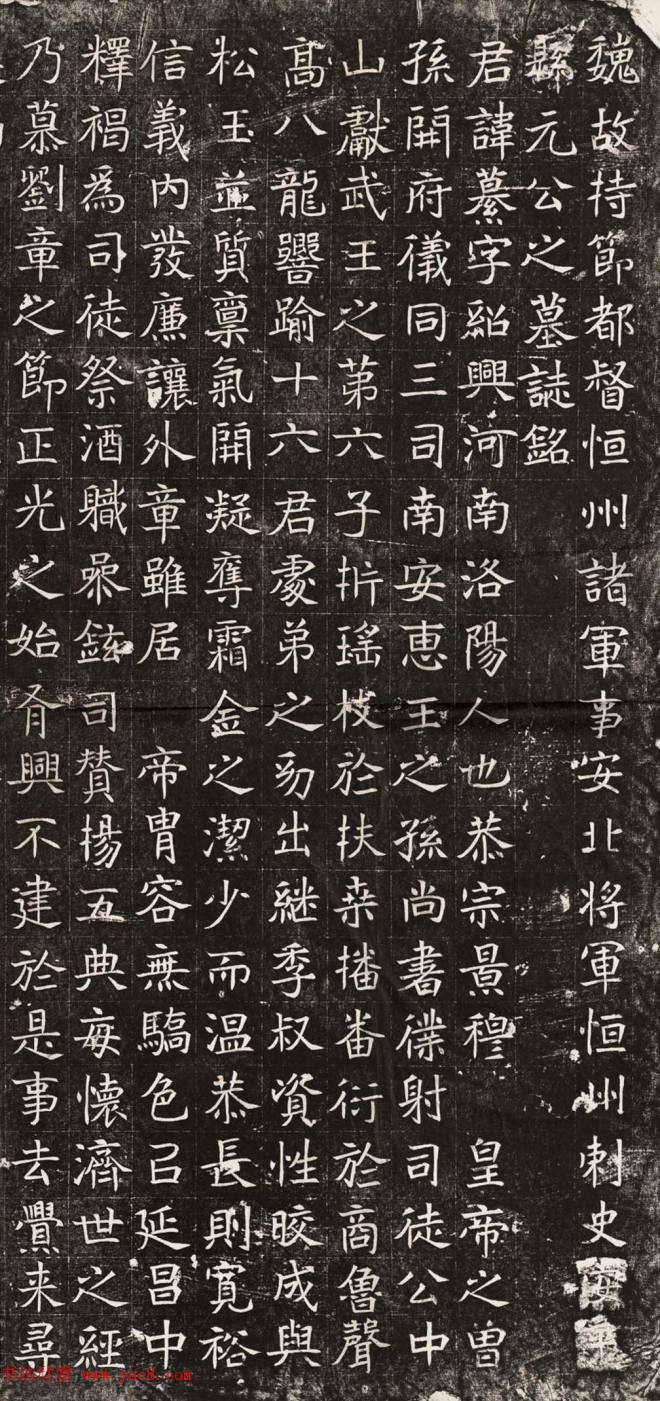 魏故持節都督恒州諸軍事安北将軍恒州刺史安平
縣元公之墓誌銘
君諱纂字紹興河南洛陽人也恭宗景穆皇帝之曽
孫開府儀同三司南安惠王之孫尚書僕射司徒公中
山獻武王之第六子折瑤枝於扶桒播番衍於商魯聲
高八龍響踰十六君處弟之幼出継季叔資性皎成與
松玉並質禀氣開凝奪霜金之潔少而温恭長則寛裕
信義内發廉讓外章雖居帝胄容無驕色㠯延昌中
釋褐爲司徒祭酒職叅鉉司賛楊五典每懷濟世之經
乃慕劉章之節正光之始有興不建於是事去舋来尋
www.yac8.com